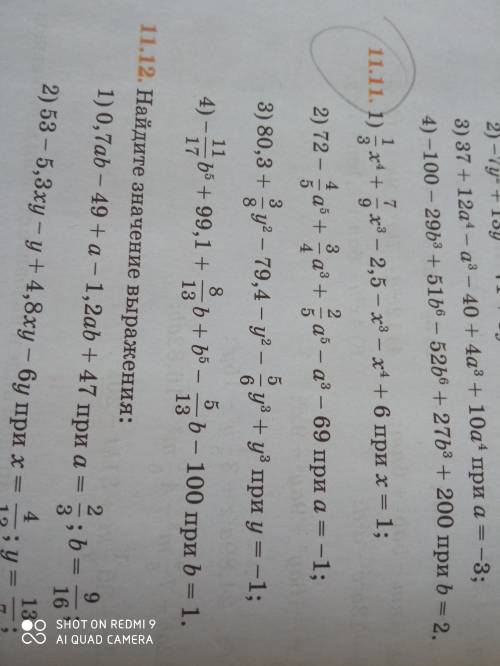 3) 37 + 12a⁴ − a³ − 40 + 4a³ + 10a⁴ при a = −3;
4) −100 − 29b³ + 51b⁶ − 52b⁶ + 27b³ + 200 при b = 2.
11.11. 1) 1/3 x⁴ + 7/9 x³ − 2,5 − x³ − x⁴ + 6 при x = 1;
2) 72 − 4/5 a⁵ + 3/4 a³ + 2/5 a⁵ − a³ − 69 при a = −1;
3) 80,3 + 3/8 y² − 79,4 − y² − 5/6 y³ + y³ при y = −1;
4) − 11/17 b⁵ + 99,1 + 8/13 b + b⁵ − 5/13 b − 100 при b = 1.
11.12. Найдите значение выражения:
1) 0,7ab − 49 + a − 1,2ab + 47 при a = 2/3; b = 9/16;
2) 53 − 5,3xy − y + 4,8xy − 6y при x = 4/13; y = 13/7;
SHOT ON REDMI 9
AI QUAD CAMERA